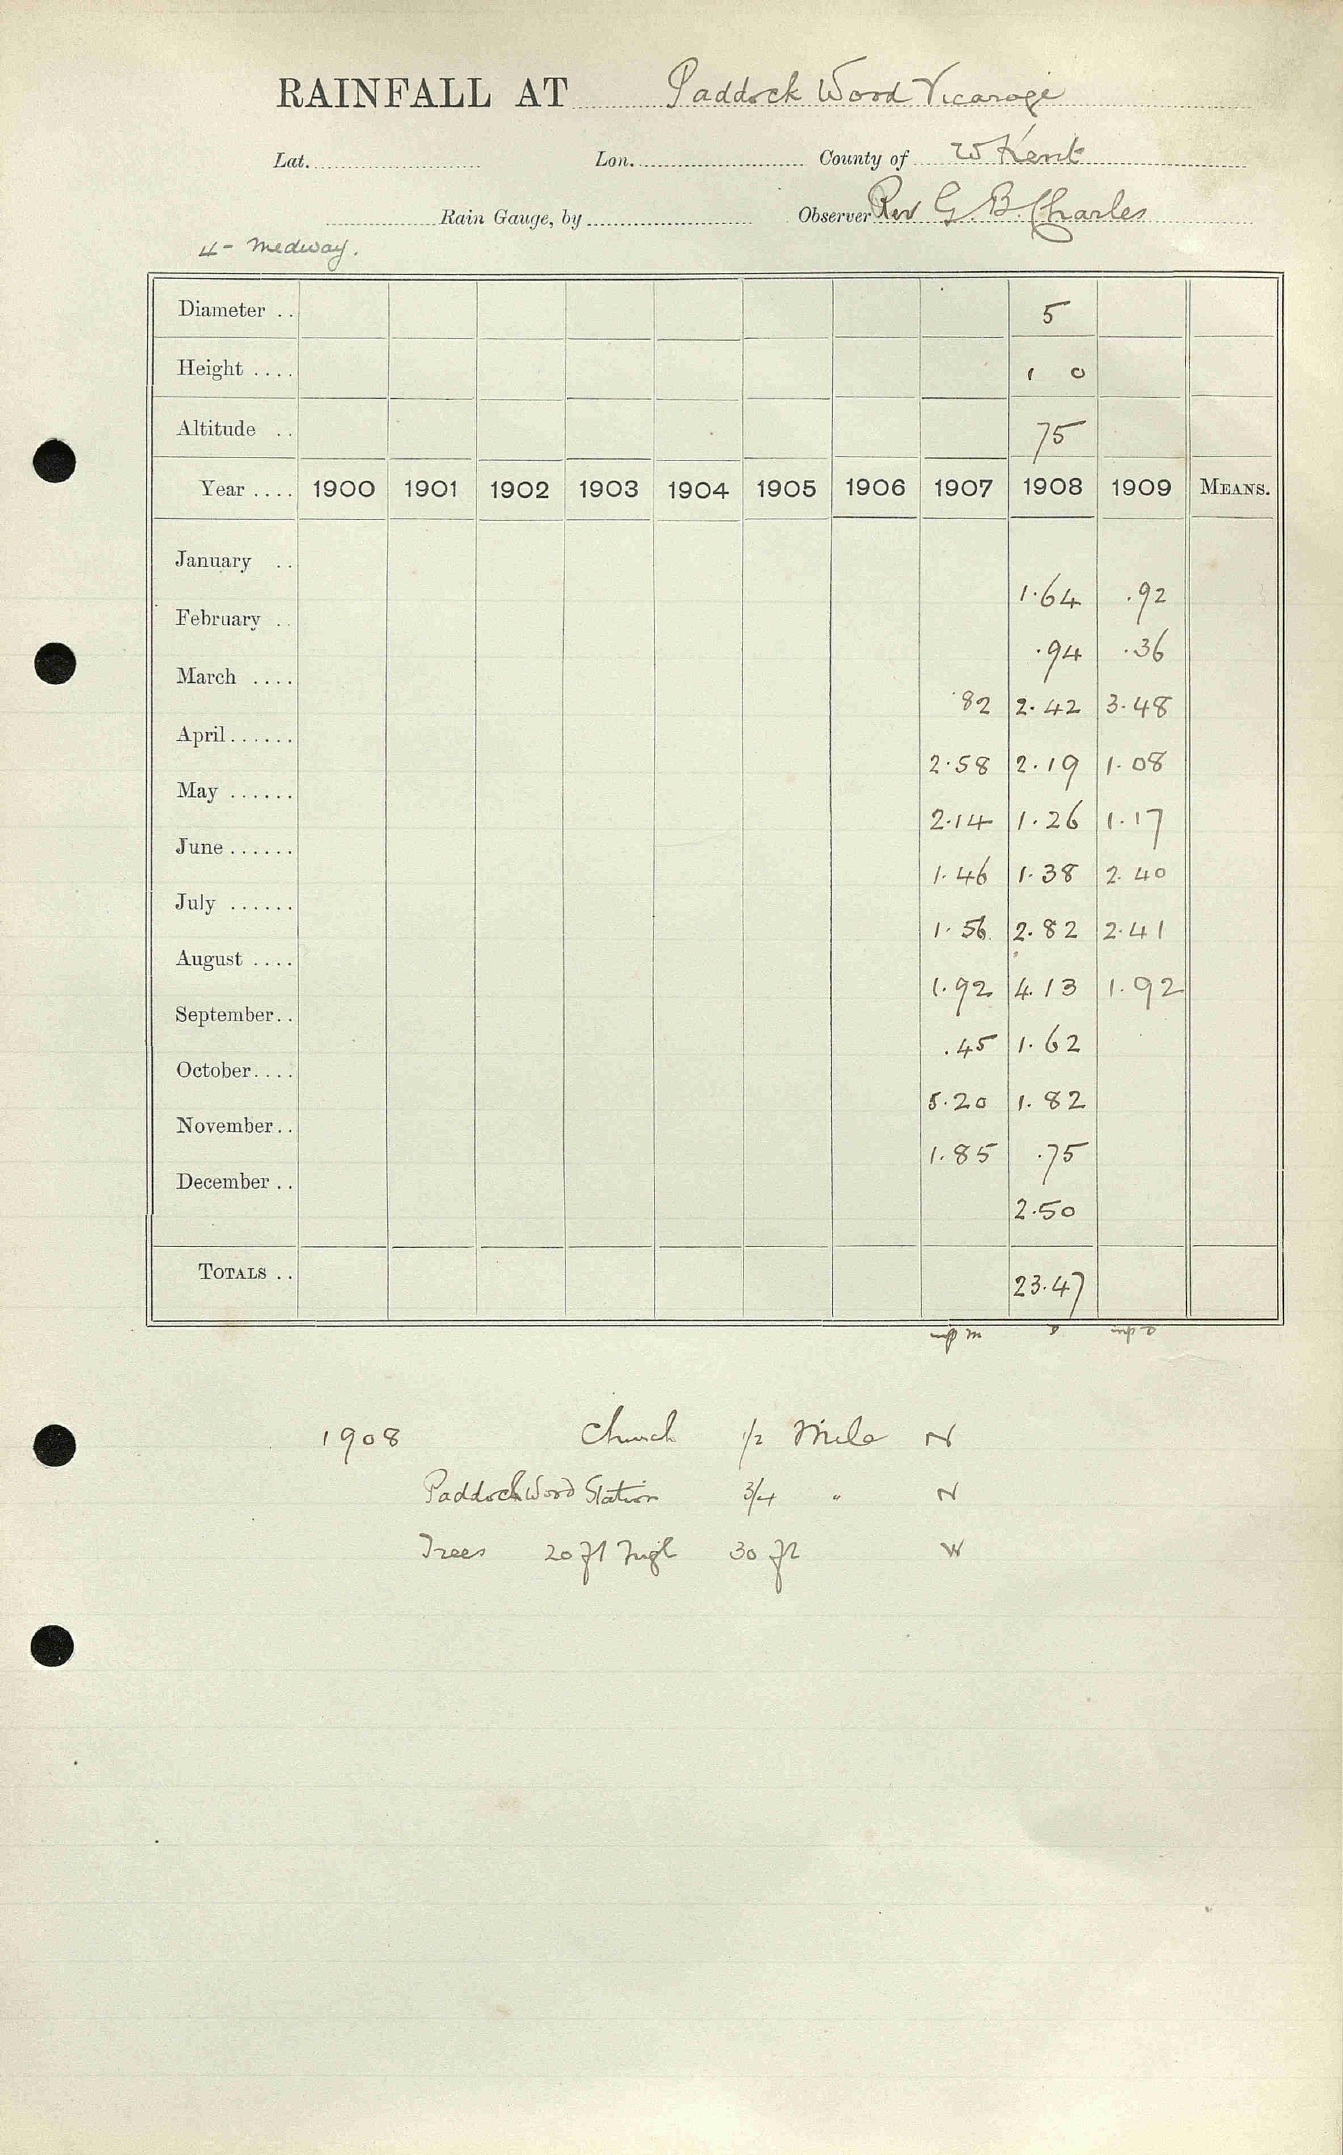 RAINFALL AT Paddock Wood Vicarage
Lat. Lon. County of W Kent
Rain Gauge, by Observer Rev G. B. Charles
4 - Medway.
Diameter .. 5
Height .... 1 0
Altitude .. 75
Year .... 1900 1901 1902 1903 1904 1905 1906 1907 1908 1909 MEANS.
January ..
1.64 .92
February ..
.94 .36
March ....
.82 2.42 3.48
April......
2.58 2.19 1.08
May ......
2.14 1.26 1.17
June......
1.46 1.38 2.40
July ......
1.56 2.82 2.41
August ....
1.92 4.13 1.92
September..
.45 1.62
October....
5.20 1.82
November..
1.85 .75
December ..
2.50
TOTALS .. 23.47
1908 Church 1/2 Mile N
Paddock Wood Station 3/4 " N
Trees 20 ft high 30 ft W